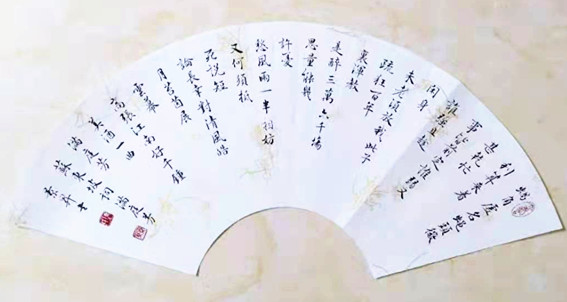 蝸角虛名蠅頭微
利算來著
甚乾忙
事皆前定誰弱又
誰強且趁
閒身
未老須放我些子
疏狂百年
裏渾教
是醉三萬六千場
思量能幾
許憂
愁風雨一半相妨
又何須抵
死說短
論長幸對清風皓
月苔茵展
雲幕
高張江南好千鍾
美酒一曲
滿庭芳
蘇東坡詞滿庭芳